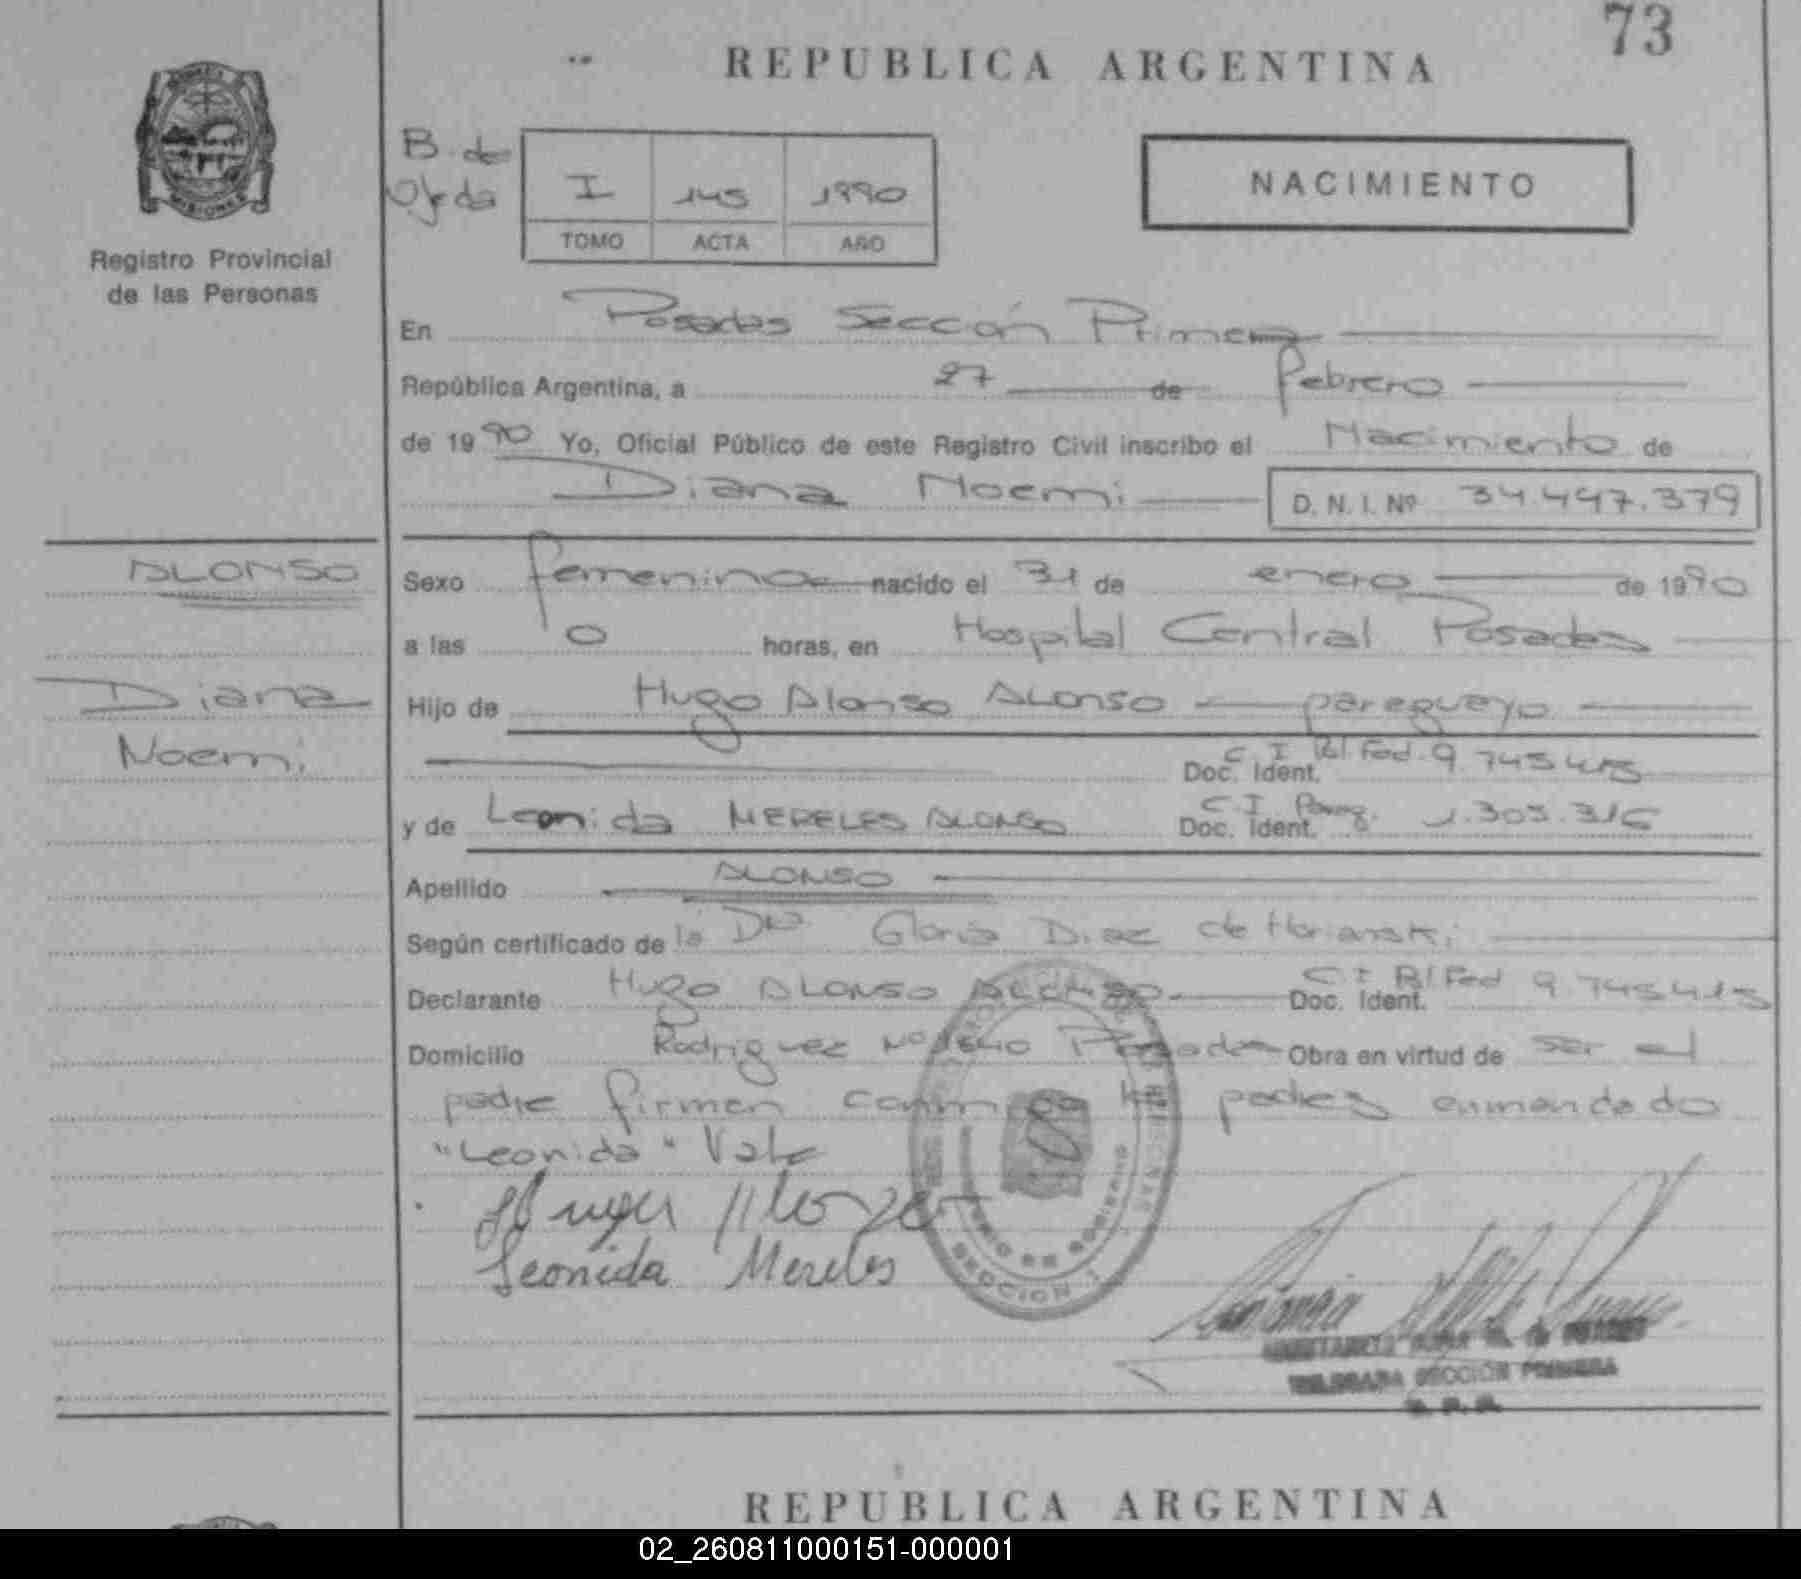 73
REPUBLICA ARGENTINA
MISIONES
Registro Provincial
de las Personas
B. de
Ojeda
I 145 1990
TOMO ACTA AÑO
NACIMIENTO
En Posadas Sección Primera
República Argentina, a 27 de febrero
de 1990 Yo, Oficial Público de este Registro Civil inscribo el Nacimiento de
Diana Noemi D. N. I. Nº 34.497.379
ALONSO
Diana
Noemi
Sexo femenino nacido el 31 de enero de 1990
a las 0 horas, en Hospital Central Posadas
Hijo de Hugo Alonso ALONSO paraguayo
Doc. Ident. C. I. Pol. Fed. 9.745.415
y de Leonida MERELES ALONSO Doc. Ident. C I Parag. 1.303.316
Apellido ALONSO
Según certificado de la Dra Gloria Diaz de
Declarante Hugo ALONSO ALONSO Doc. Ident. C. I. Pol Fed 9.745.415
Domicilio Rodriguez Nº Posadas Obra en virtud de ser el
padre firman conmigo los padres enmendado
"Leonida" Vale
Hugo Alonso
Leonida Mereles
SECCION 1
SECCION PRIMERA
REPUBLICA ARGENTINA
02_260811000151-000001